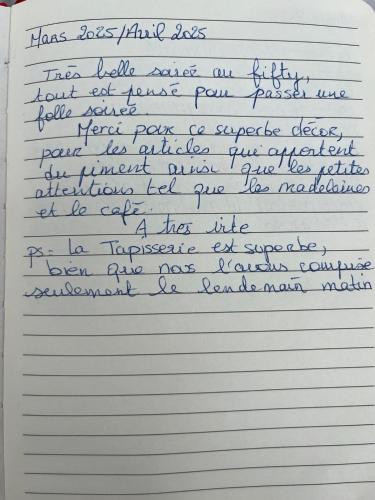 Mars 2025/Avril 2025
Très belle soirée au fifty,
tout est pensé pour passer une
folle soirée.
Merci pour ce superbe décor,
pour les articles qui apportent
du piment ainsi que les petites
attentions tel que les madelaines
et le café.
A tres irte
ps: la Tapisserie est superbe,
bien que nos l'avons comprise
seulement le lendemain matin